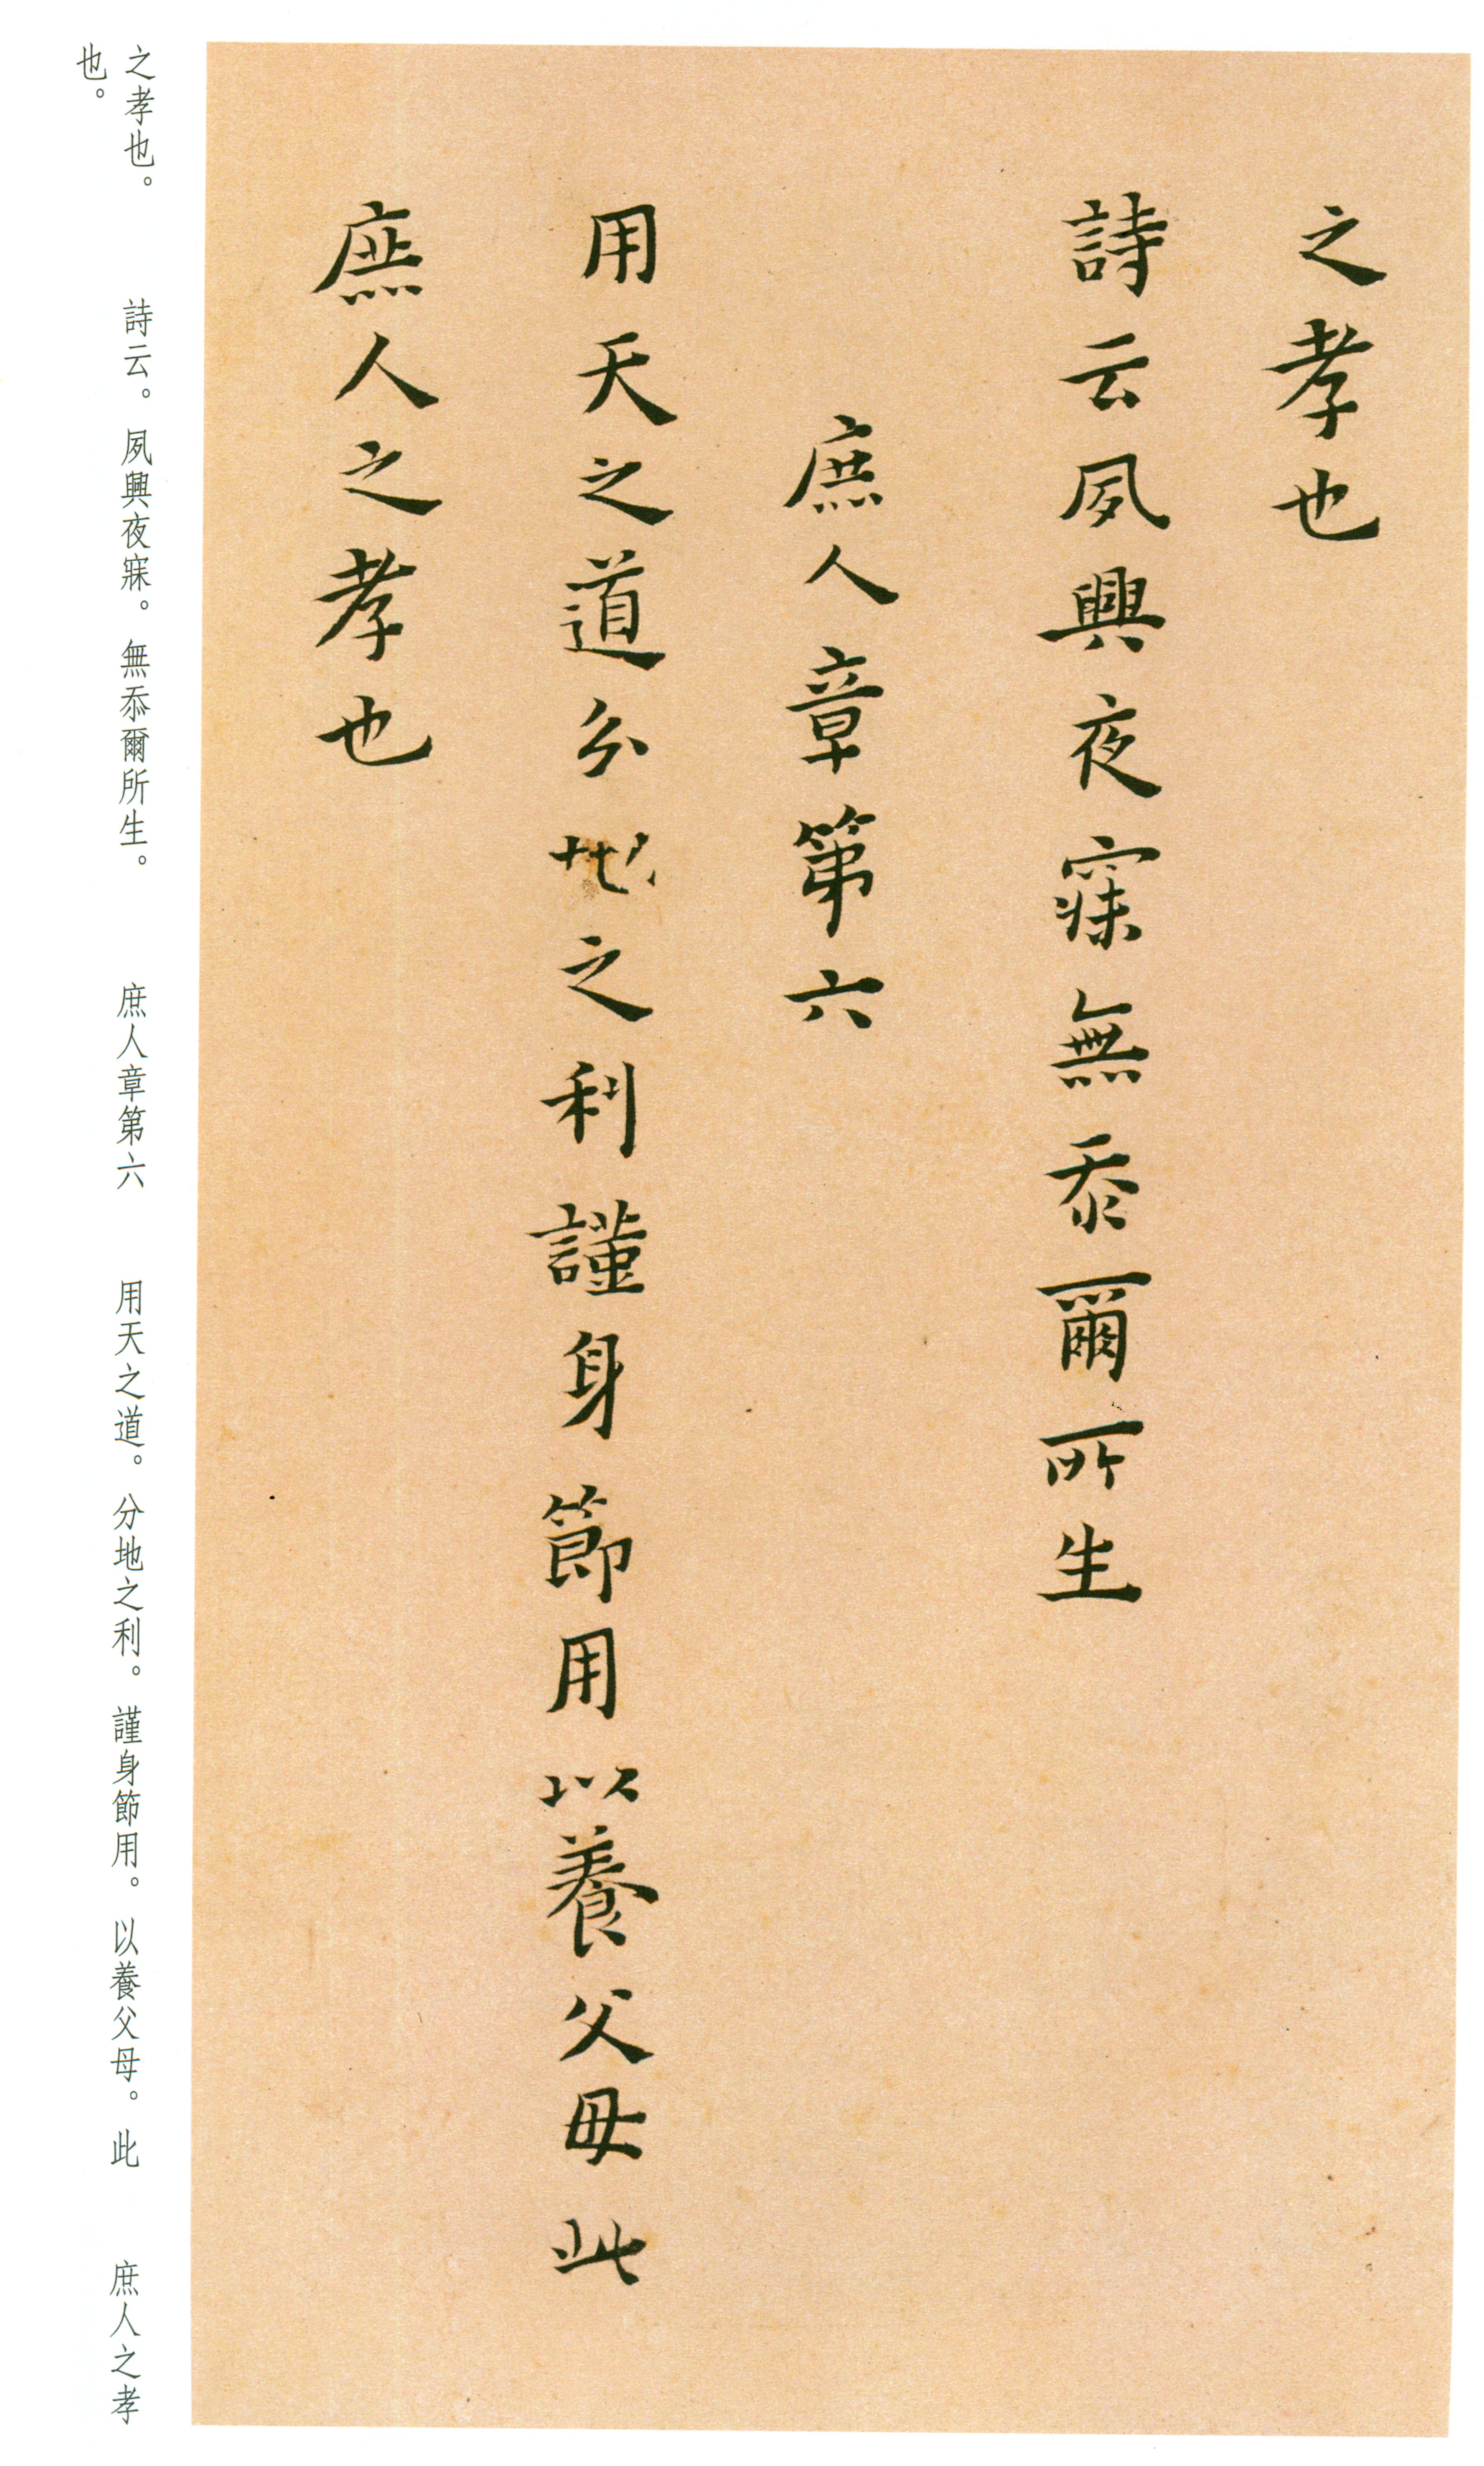 之孝也
詩云夙興夜寐無忝爾所生
庶人章第六
用天之道分地之利謹身節用以養父母此
庶人之孝也
之孝也。 詩云。夙興夜寐。無忝爾所生。 庶人章第六 用天之道。分地之利。謹身節用。以養父母。此 庶人之孝
也。